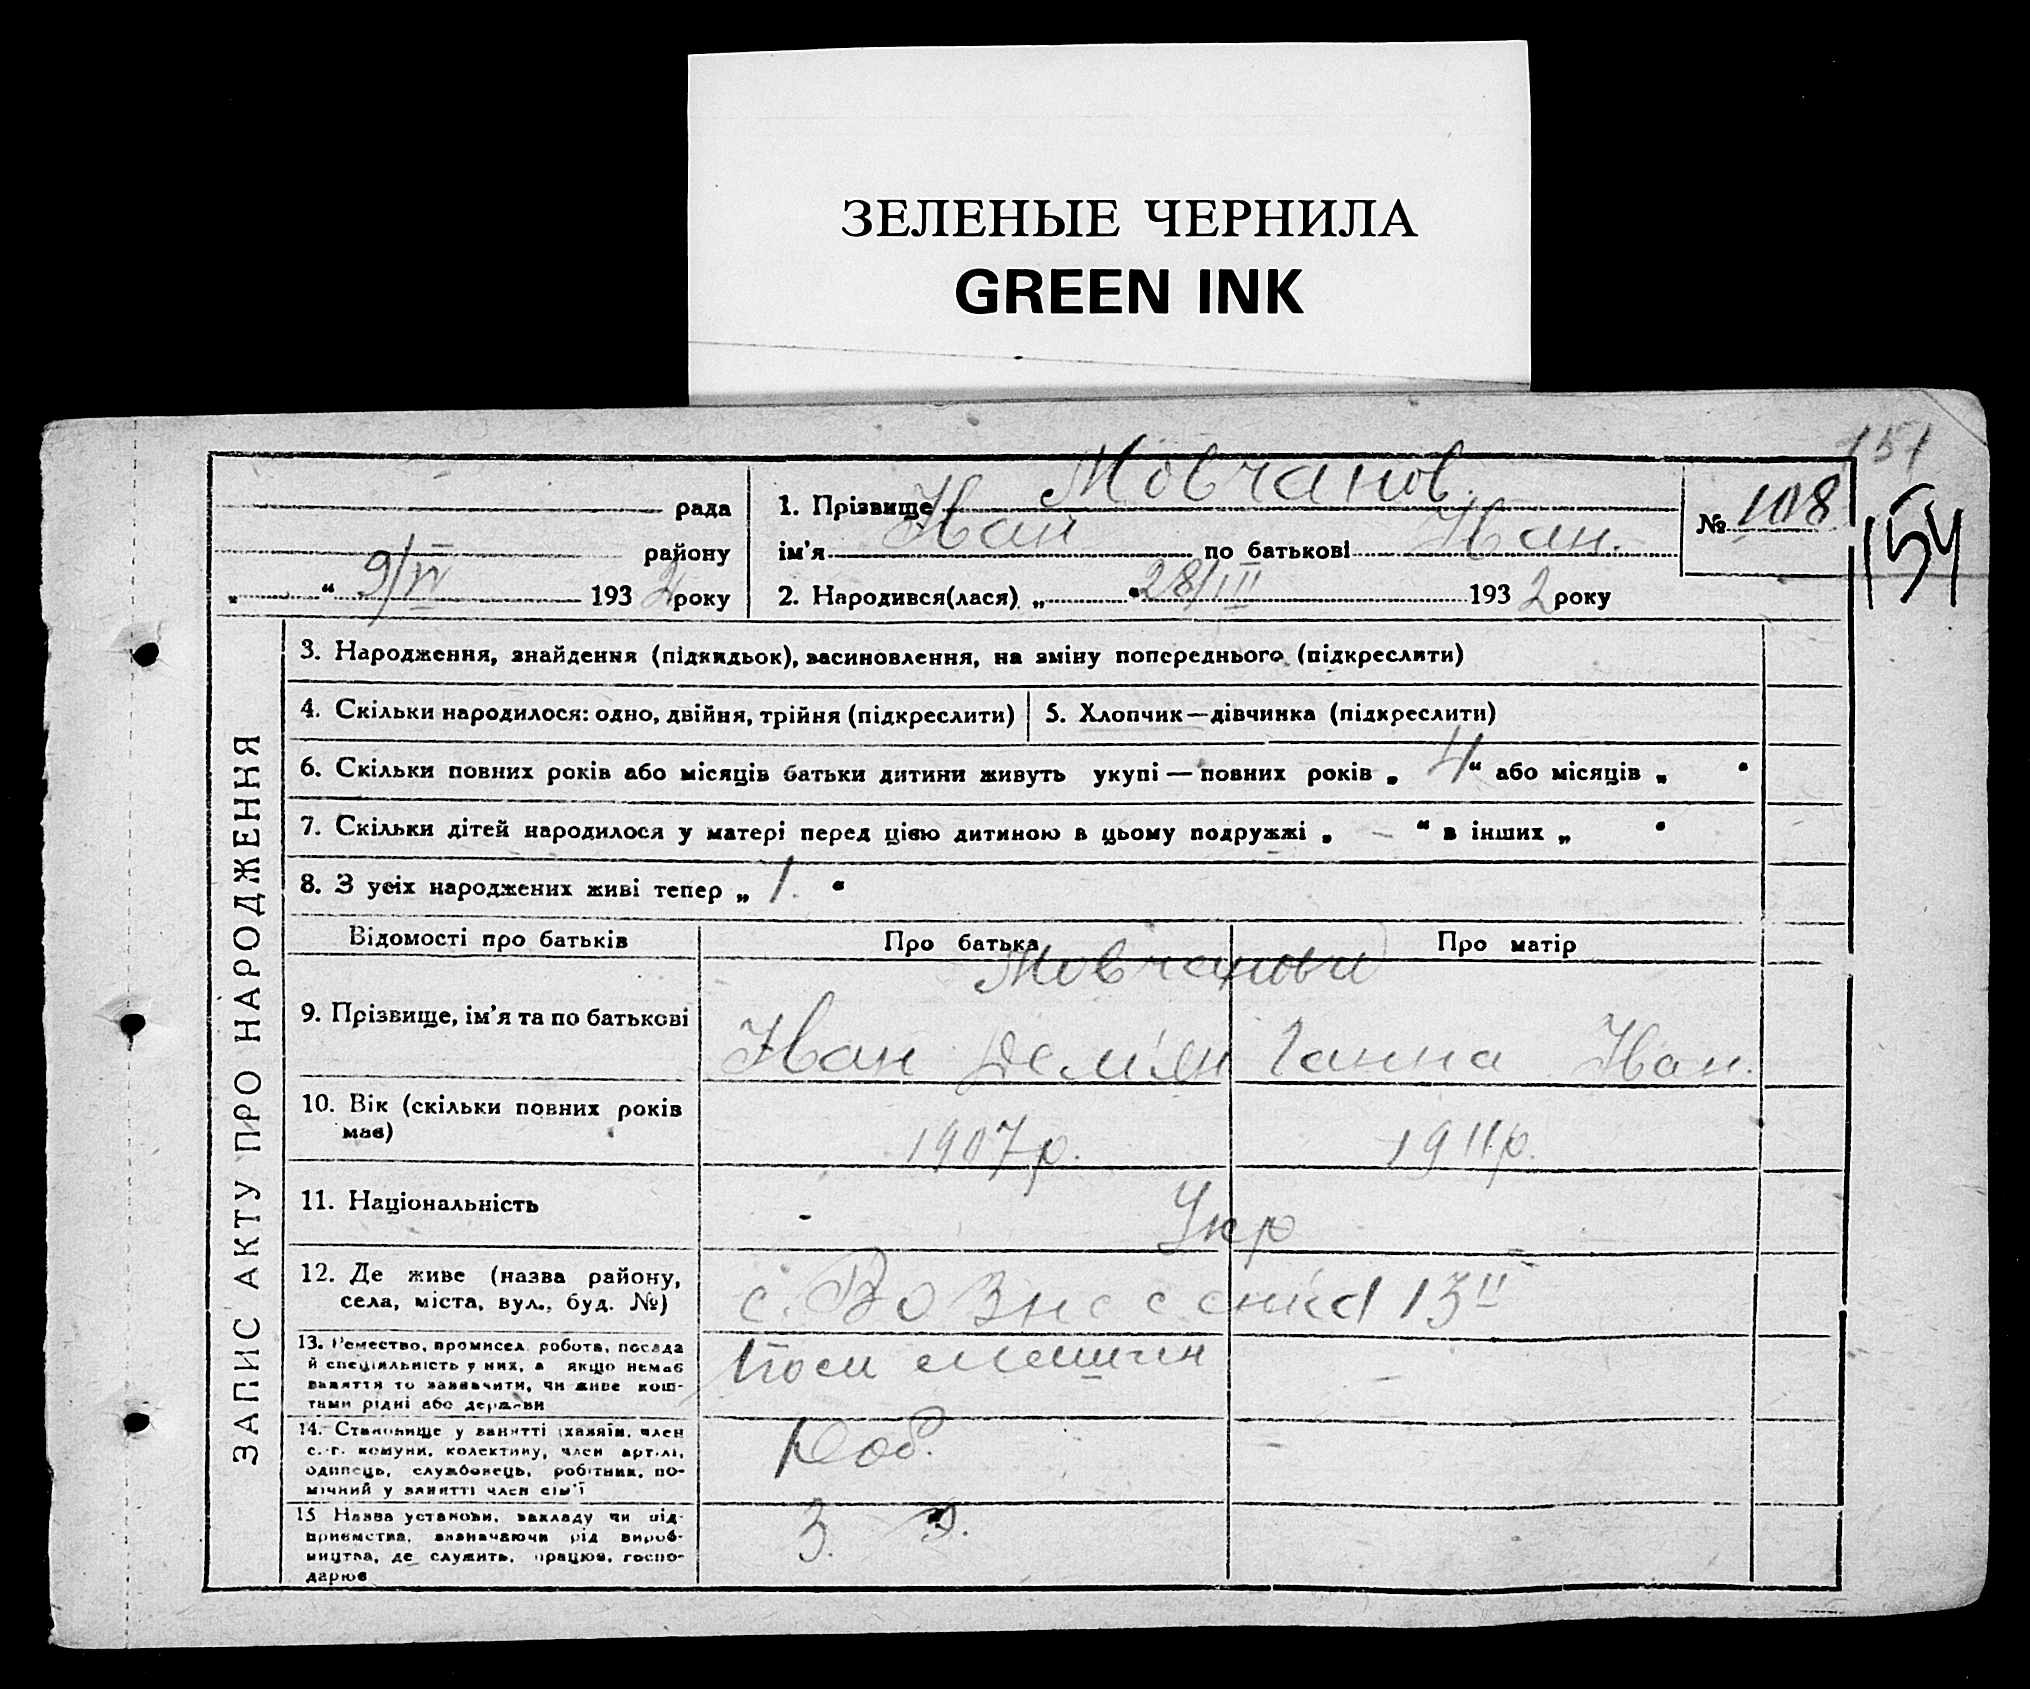 ЗЕЛЕНЫЕ ЧЕРНИЛА
GREEN INK
151
154
рада
району
„ “ 9/IV 1932 року
1. Прізвище Мовчанов.
ім'я Иван по батькові Иван.
2. Народився(лася) „ “ 28/III 1932 року
№ 108
ЗАПИС АКТУ ПРО НАРОДЖЕННЯ
3. Народження, знайдення (підкидьок), засиновлення, на зміну попереднього (підкреслити)
4. Скільки народилося: одно, двійня, трійня (підкреслити)
5. Хлопчик—дівчинка (підкреслити)
6. Скільки повних років або місяців батьки дитини живуть укупі — повних років „ 4 “ або місяців „ “
7. Скільки дітей народилося у матері перед цією дитиною в цьому подружжі „ — “ в інших „ “
8. З усіх народжених живі тепер „ 1. “
Відомості про батьків
Про батька
Про матір
9. Прізвище, ім'я та по батькові
Мовчанови
Иван Дем'ян
Ганна Иван.
10. Вік (скільки повних років
має)
1907р.
1911р.
11. Національність
Укр
12. Де живе (назва району,
села, міста, вул., буд. №)
с. Вознесенка 13
13. Ремество, промисел, робота, посада
й спеціяльність у них, а якщо немає
заняття то зазначити, чи живе кош-
тами рідні або держави
14. Становище у занятті (хазяїн, член
с.-г. комуни, колективу, член артілі,
одинець, службовець, робітник, по-
мічний у занятті член сім'ї
Роб.
15 Назва установи, закладу чи під-
приємства, визначаючи рід вироб-
ництва, де служить, працює, госпо-
дарює